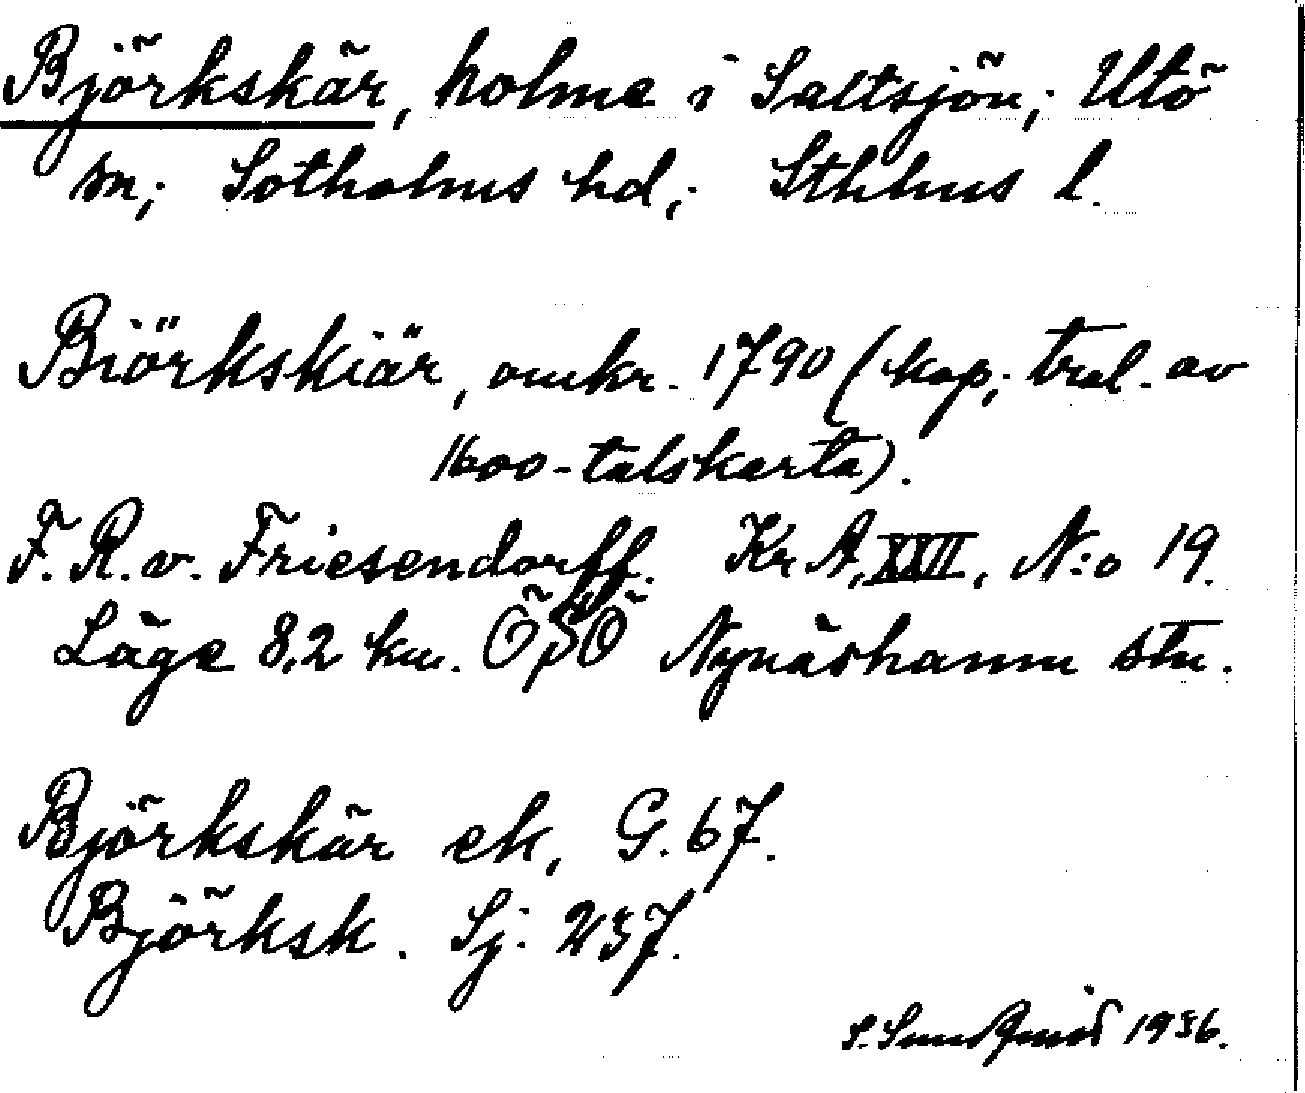 Björkskär, holme i Saltsjön; Utö
sn; Sotholms hd; Sthlms l.
Biörkskiär, omkr. 1790 (kop; trol. av
1600-talskarta).
F. R. v. Friesendorff. Kr A, XXII, N:o 19.
Läge 8,2 km. ÖSÖ Nynäshamn stn.
Björkskär ek, G. 67.
Björksk. Sj. 237.
S. Sundqvist 1936.